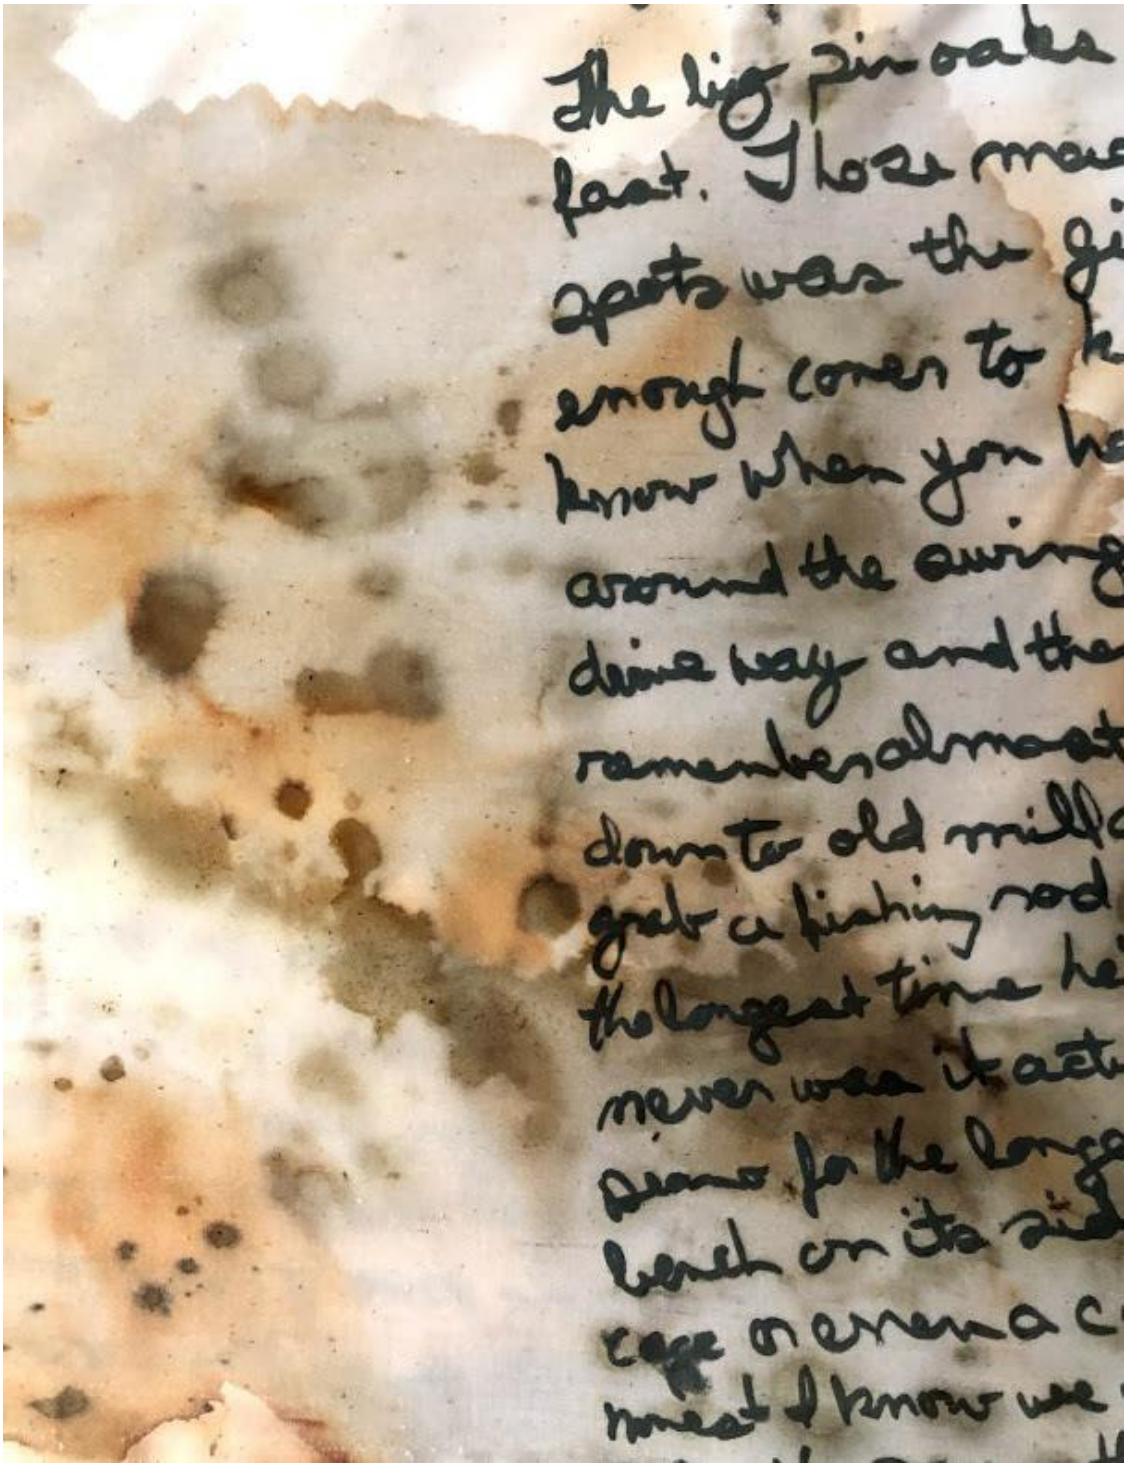 The big pin oaks
fast. Those
spots was the
enough comes to
know when you
around the swing
drive way and the
remember almost
down to old mill
grab a fishing rod
the longest time
never was it
piano for the
bench on its
cage or even a
I know we